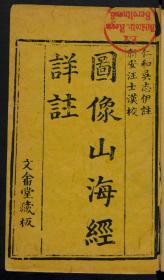 仁和吳志伊註
新安汪士漢校
圖像山海經
詳註
文畬堂藏板